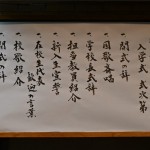 入学式 式次第
一 開式の辞
一 国歌斉唱
一 学校長式辞
一 担当教員紹介
一 新入生宣誓
一 在校生代表歓迎の言葉
一 校歌紹介
一 閉式の辞